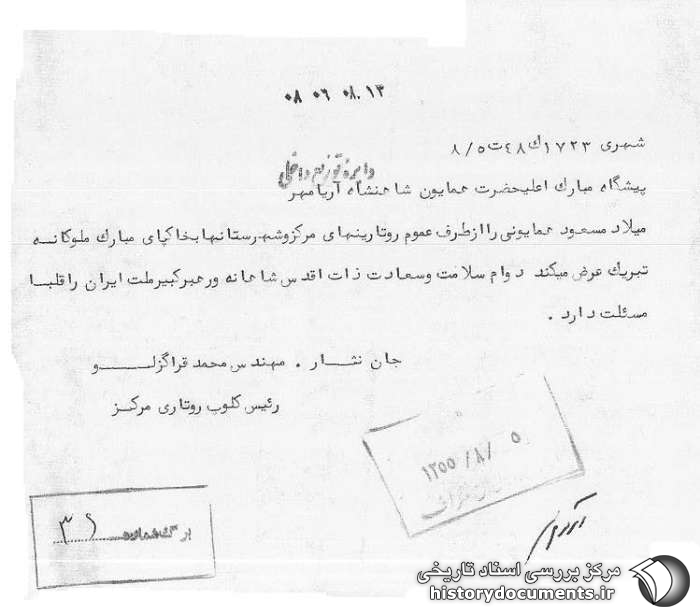 ۰۸ ۰۶ ۰۸.۱۳
شهری ۱۷۲۳ك۴۸ت۸/۵
دایره توزیع داخلی
پیشگاه مبارك اعلیحضرت همایون شاهنشاه آریامهر
میلاد مسعود همایونی را ازطرف عموم روتارینهای مرکزوشهرستانها بخاکپای مبارك ملوکانه
تبریك عرض میکند دوام سلامت وسعادت ذات اقدس شاهانه ورهبرکبیرملت ایران راقلبا
مسئلت دارد .
جان نثار . مهندس محمد قراگزلو
رئیس کلوب روتاری مرکز
۱۳۵۵/۸/ ۵
برگ شماره
مرکز بررسی اسناد تاریخی
historydocuments.ir